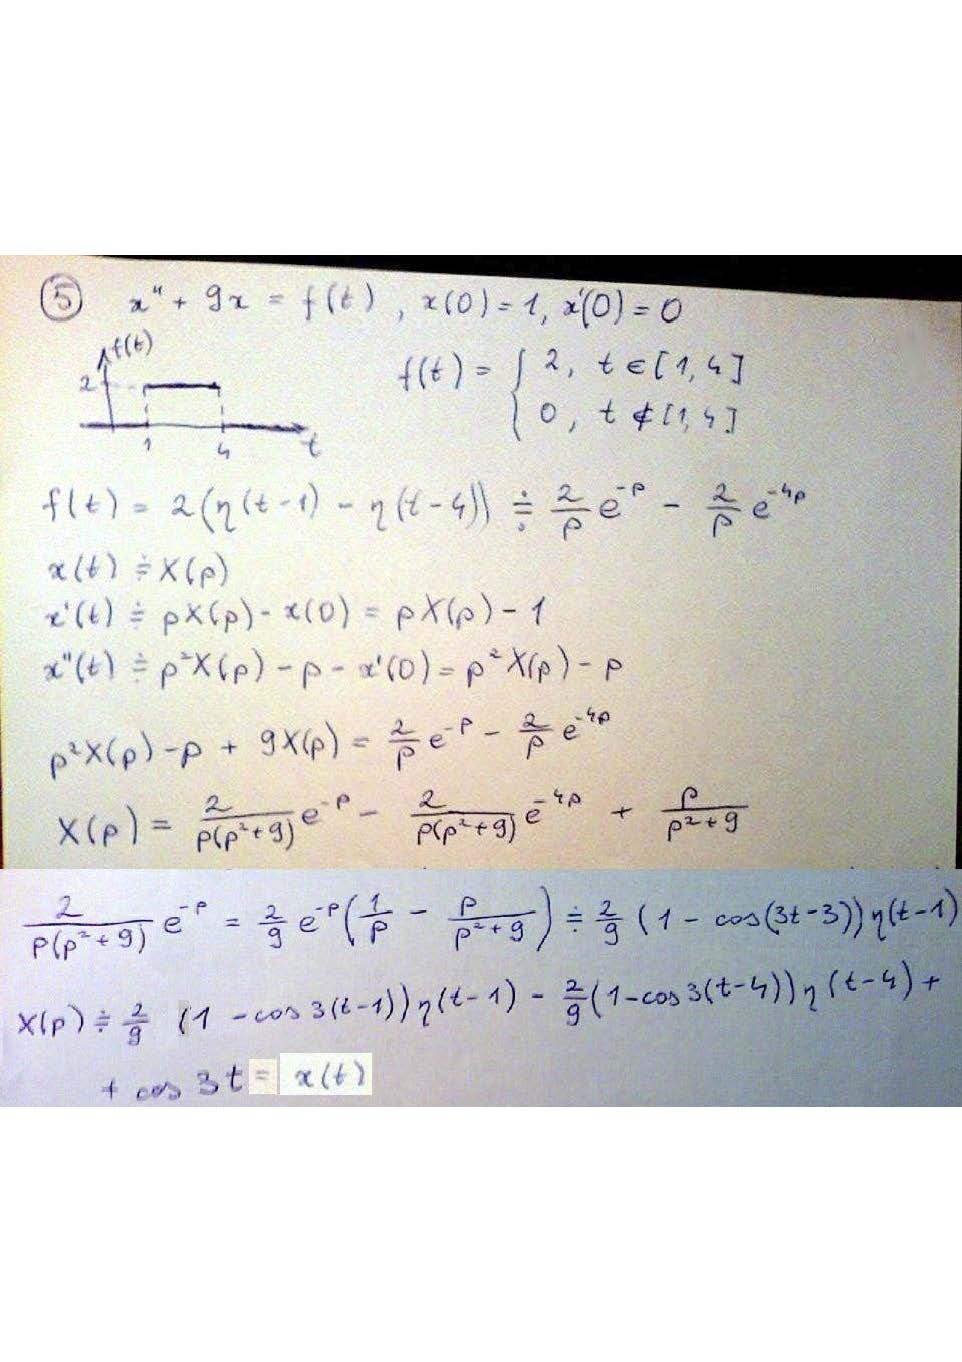 5 x" + 9x = f(t), x(0)=1, x'(0)=0
f(t)
2
1 4 t
f(t) = { 2, t ∈ [1,4]
0, t ∉ [1,4]
f(t) = 2(η(t-1) - η(t-4)) ≑ 2/p e^-p - 2/p e^-4p
x(t) ≑ X(p)
x'(t) ≑ pX(p) - x(0) = pX(p) - 1
x"(t) ≑ p²X(p) - p - x'(0) = p²X(p) - p
p²X(p) - p + 9X(p) = 2/p e^-p - 2/p e^-4p
X(p) = 2/(p(p²+9)) e^-p - 2/(p(p²+9)) e^-4p + p/(p²+9)
2/(p(p²+9)) e^-p = 2/9 e^-p (1/p - p/(p²+9)) ≑ 2/9 (1 - cos(3t-3)) η(t-1)
X(p) ≑ 2/9 (1 - cos 3(t-1)) η(t-1) - 2/9 (1-cos 3(t-4)) η(t-4) +
+ cos 3t = x(t)